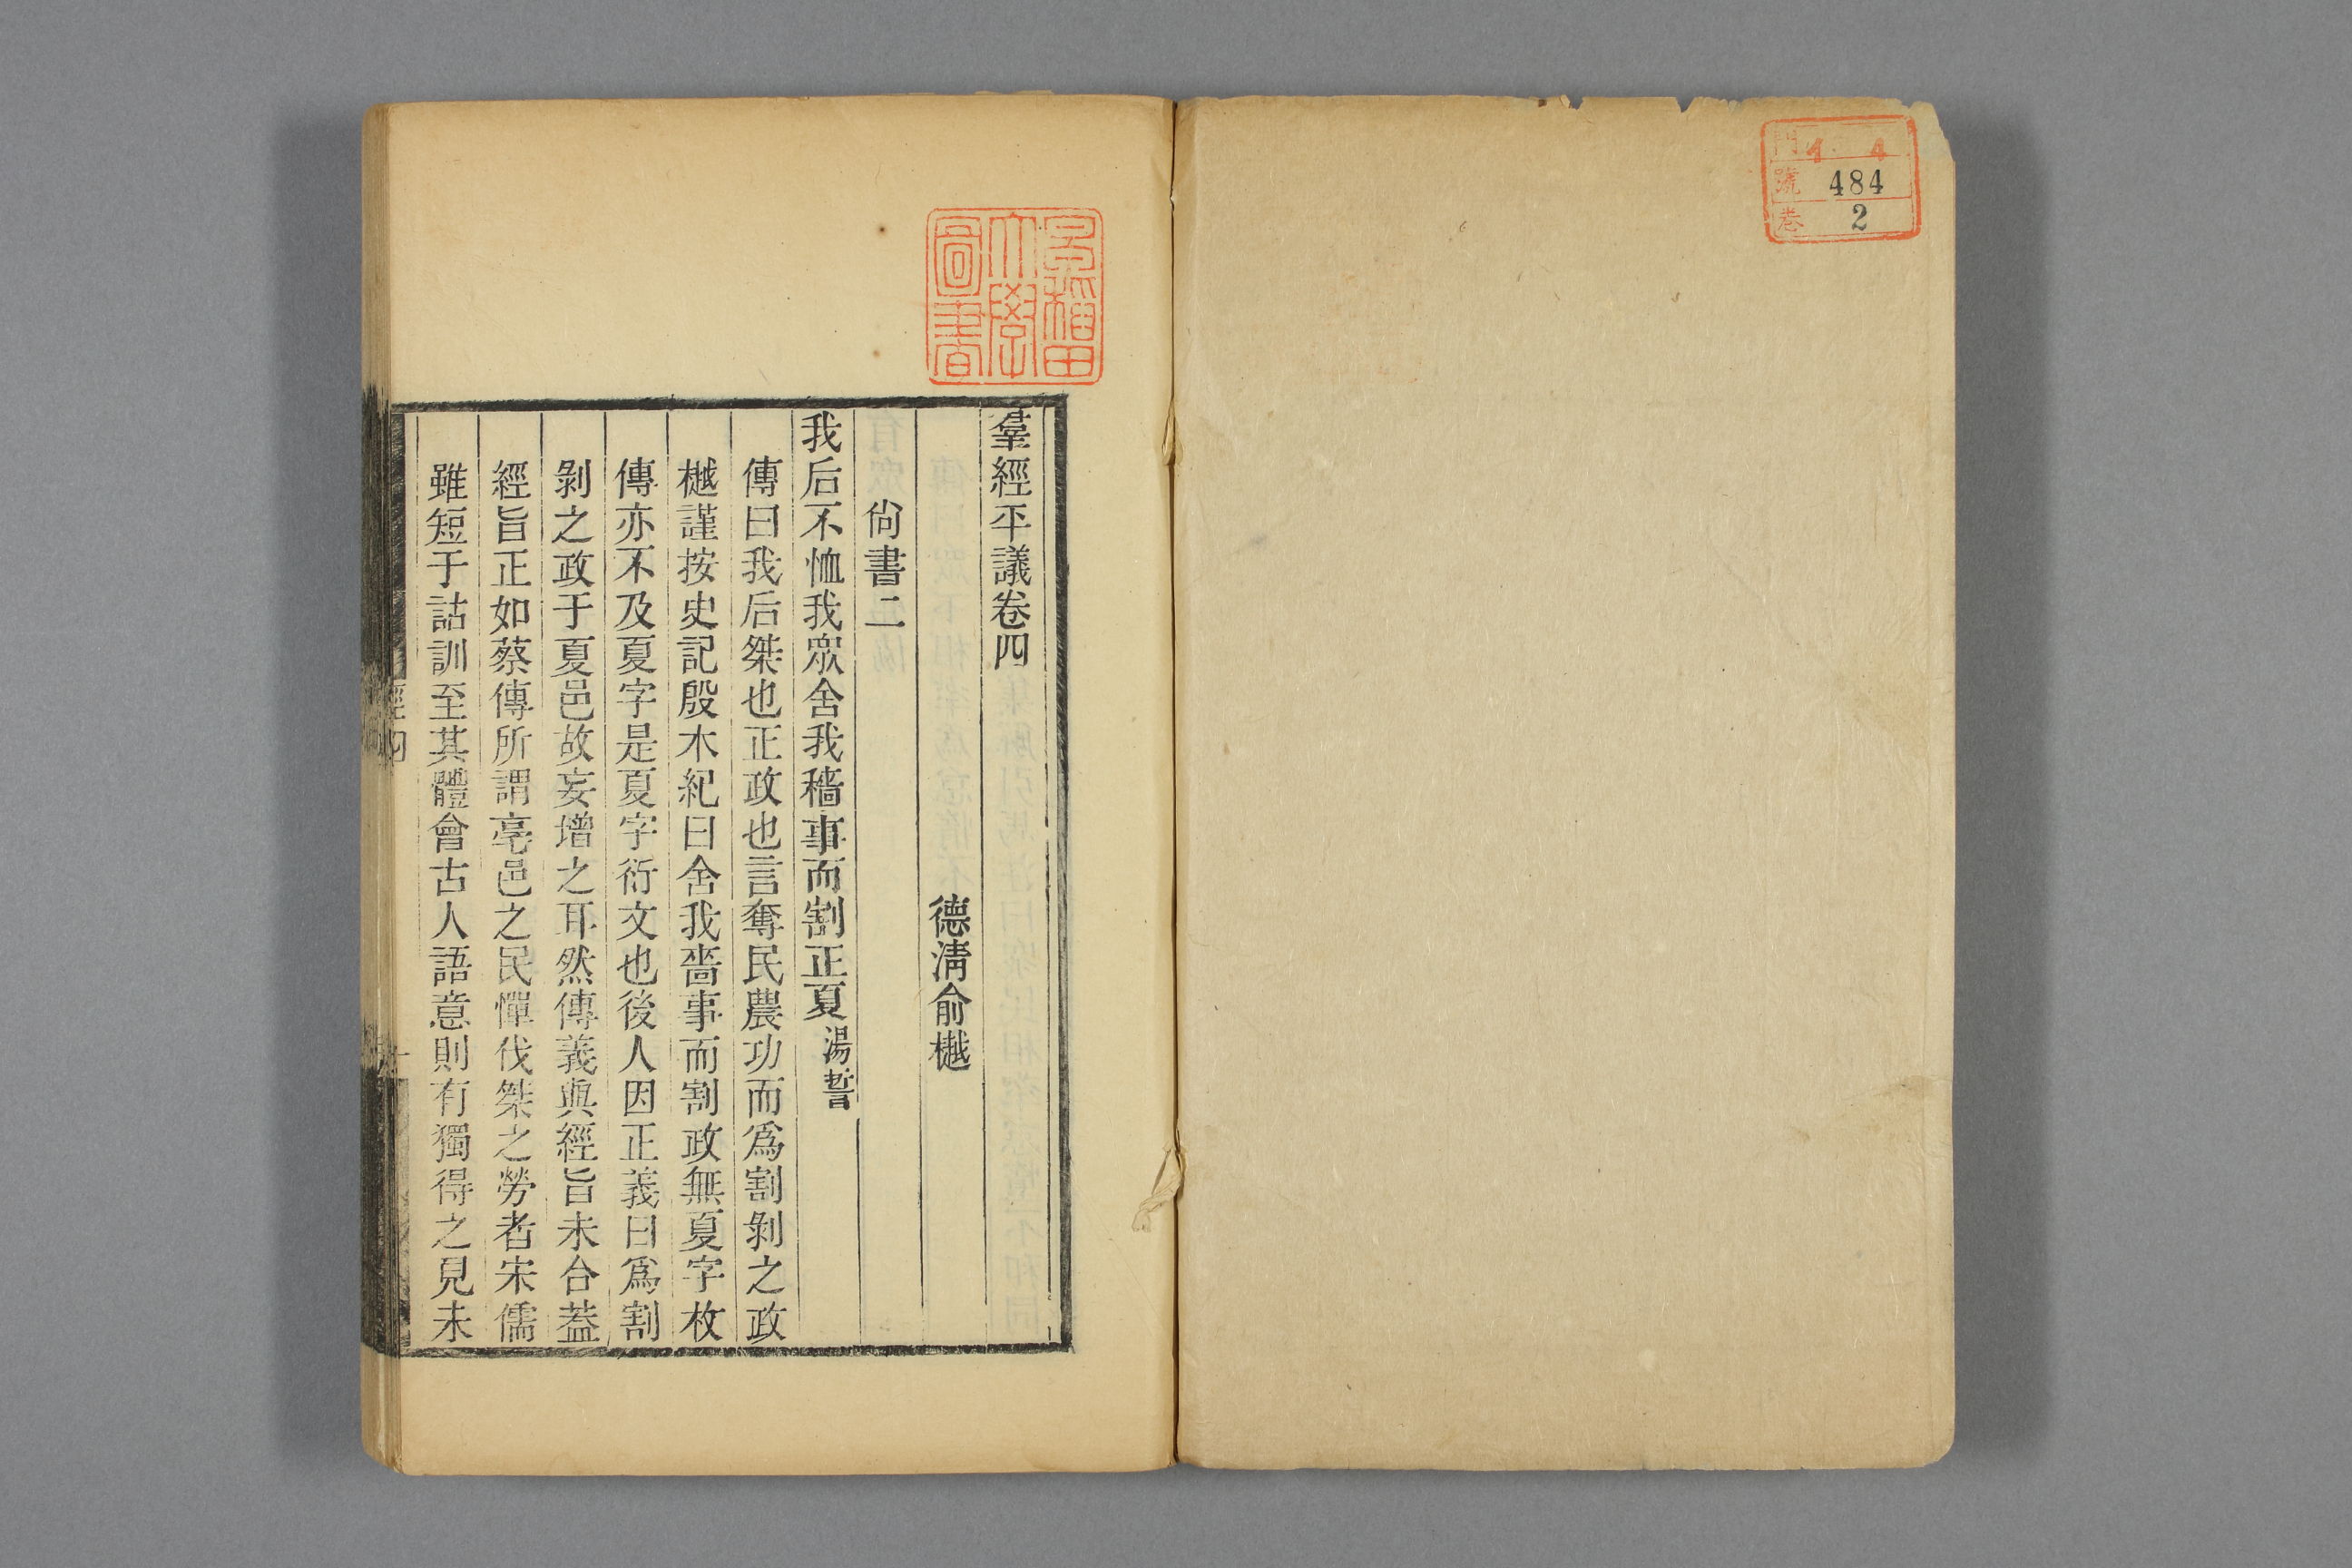 門 1 4
號 484
卷 2
早稲田
大學
圖書
羣經平議卷四
德淸俞樾
尙書二
我后不恤我眾舍我穡事而割正夏湯誓
傳曰我后桀也正政也言奪民農功而爲割剝之政
樾謹按史記殷本紀曰舍我嗇事而割政無夏字枚
傳亦不及夏字是夏字衍文也後人因正義曰爲割
剝之政于夏邑故妄增之耳然傳義與經旨未合蓋
經旨正如蔡傳所謂亳邑之民憚伐桀之勞者宋儒
雖短于詁訓至其體會古人語意則有獨得之見未
經四
一